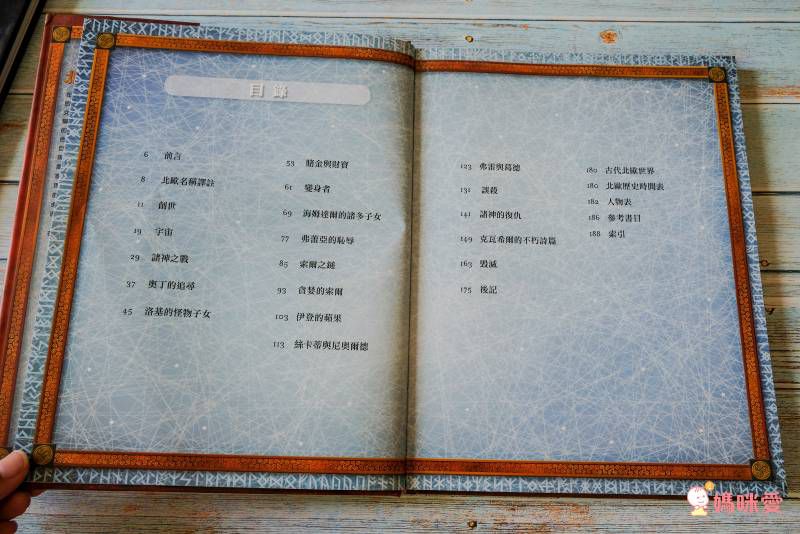 目錄
6 前言
8 北歐名稱譯註
11 創世
19 宇宙
29 諸神之戰
37 奧丁的追尋
45 洛基的怪物子女
53 賭金與財寶
61 變身者
69 海姆達爾的諸多子女
77 弗蕾亞的恥辱
85 索爾之鎚
93 貪婪的索爾
103 伊登的蘋果
113 絲卡蒂與尼奧爾德
123 弗雷與葛德
131 誤殺
141 諸神的復仇
149 克瓦希爾的不朽詩篇
163 毀滅
175 後記
180 古代北歐世界
180 北歐歷史時間表
182 人物表
186 參考書目
188 索引
媽咪愛